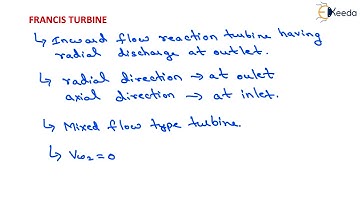 Ekeeda
FRANCIS TURBINE
↳ Inward flow reaction turbine having
radial discharge at outlet.
↳ radial direction → at oulet
axial direction → at inlet.
↳ Mixed flow type turbine.
↳ Vω₂ = 0